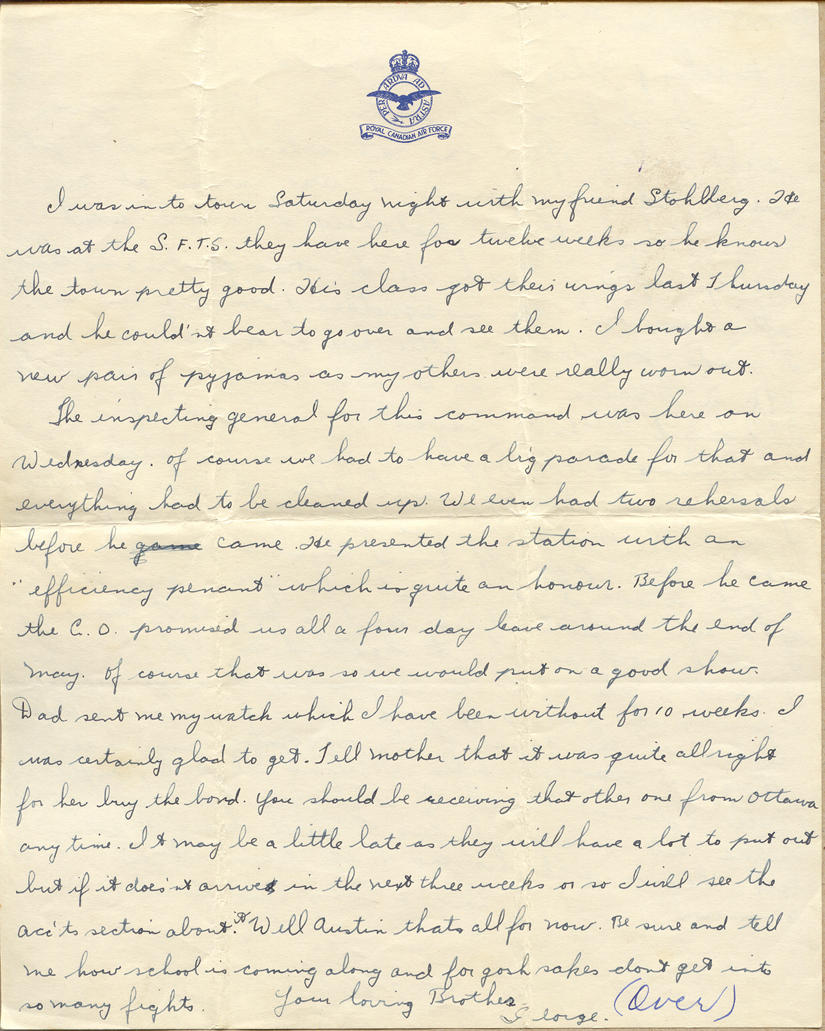 PER ARDVA AD ASTRA
ROYAL CANADIAN AIR FORCE
I was in to town Saturday night with my friend Stohlberg. He
was at the S.F.T.S. they have here for twelve weeks so he knows
the town pretty good. His class got their wings last Thursday
and he could'nt bear to go over and see them. I bought a
new pair of pyjamas as my others were really worn out.
The inspecting general for this command was here on
Wednesday. Of course we had to have a big parade for that and
everything had to be cleaned up. We even had two rehersals
before he game came. He presented the station with an
"efficiency penant" which is quite an honour. Before he came
the C.O. promised us all a four day leave around the end of
May. Of course that was so we would put on a good show.
Dad sent me my watch which I have been without for 10 weeks. I
was certainly glad to get. Tell Mother that it was quite allright
for her buy the bond. You should be receiving that other one from Ottawa
any time. It may be a little late as they will have a lot to put out
but if it does'nt arrive in the next three weeks or so I will see the
acc'ts section about it. Well Austin thats all for now. Be sure and tell
me how school is coming along and for gosh sakes dont get into
so many fights. Your loving Brother
George. (Over)